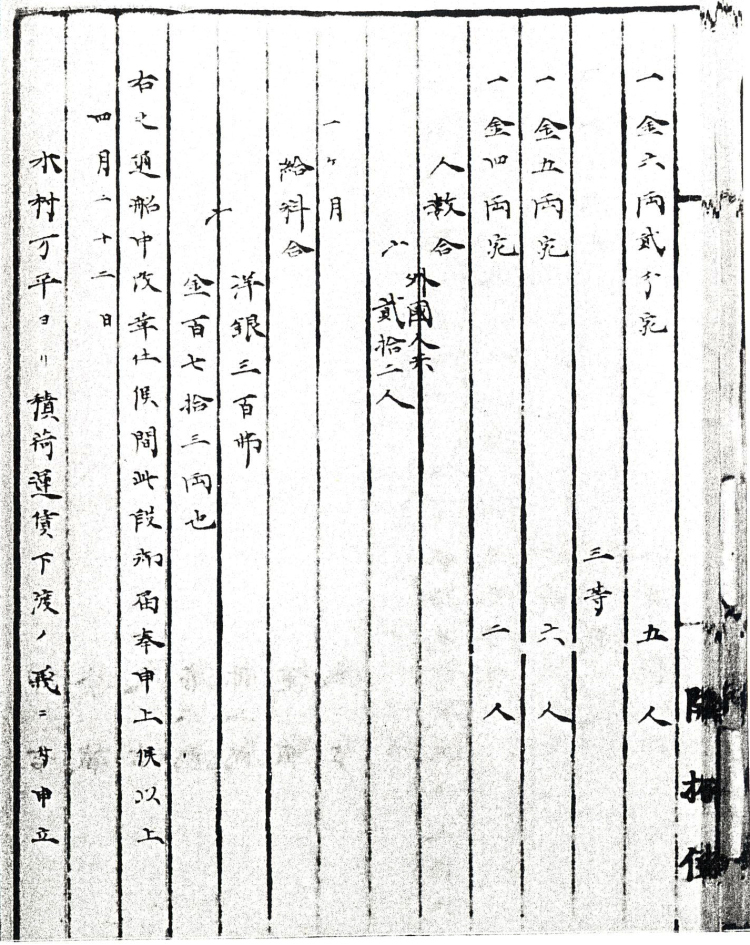 一金六両貳分宛 五人
三等
一金五両宛 六人
一金四両宛 二人
人数合
外國人共
貳拾二人
一ヶ月
給料合
洋銀三百弗
金百七拾三両也
右之通船中改革仕候間此段御届奉申上候以上
四月二十二日
木村万平ヨリ積荷運賃下渡ノ儀ニ付申立
開拓使